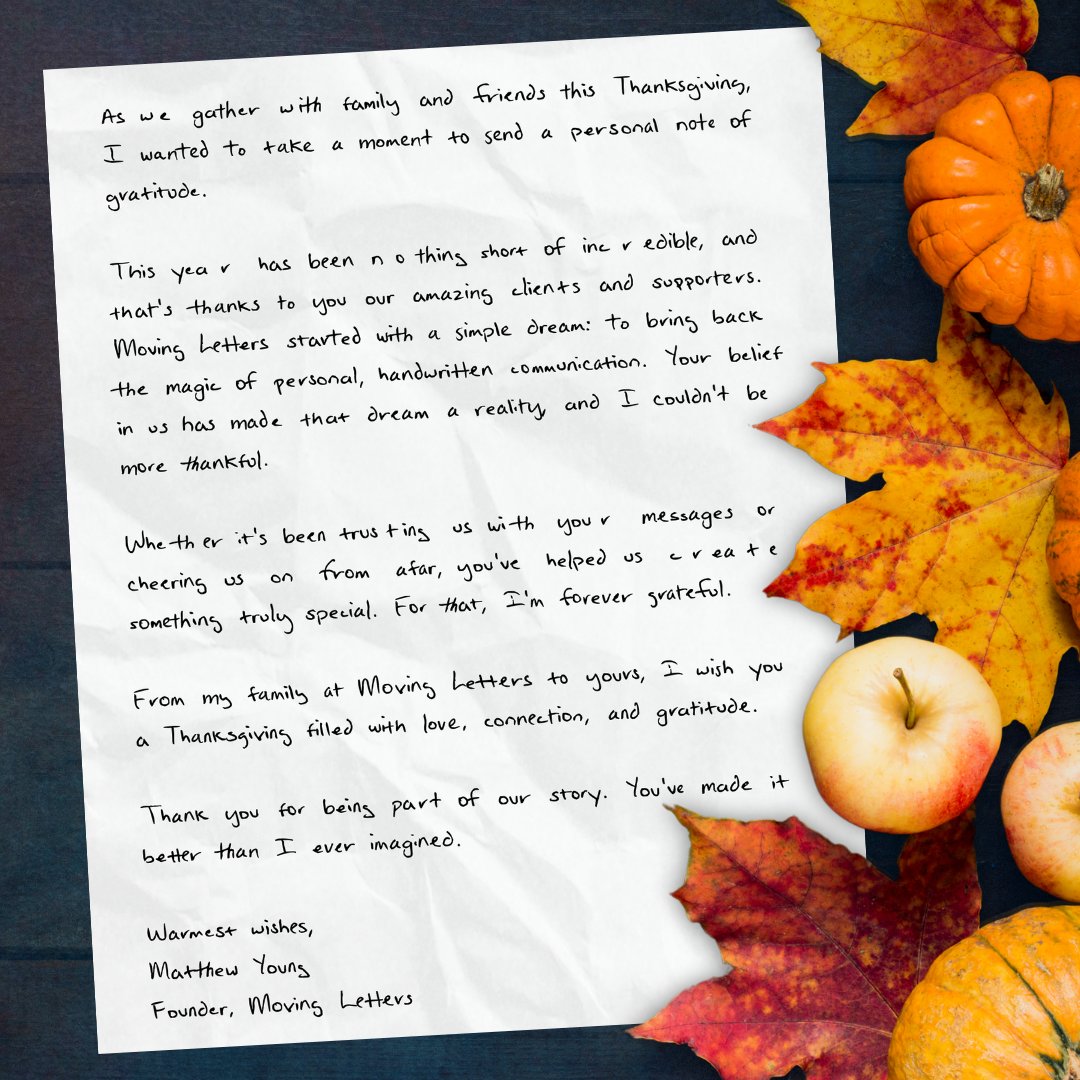 As we gather with family and friends this Thanksgiving,
I wanted to take a moment to send a personal note of
gratitude.
This year has been nothing short of incredible, and
that's thanks to you our amazing clients and supporters.
Moving Letters started with a simple dream: to bring back
the magic of personal, handwritten communication. Your belief
in us has made that dream a reality, and I couldn't be
more thankful.
Whether it's been trusting us with your messages or
cheering us on from afar, you've helped us create
something truly special. For that, I'm forever grateful.
From my family at Moving Letters to yours, I wish you
a Thanksgiving filled with love, connection, and gratitude.
Thank you for being part of our story. You've made it
better than I ever imagined.
Warmest wishes,
Matthew Young
Founder, Moving Letters